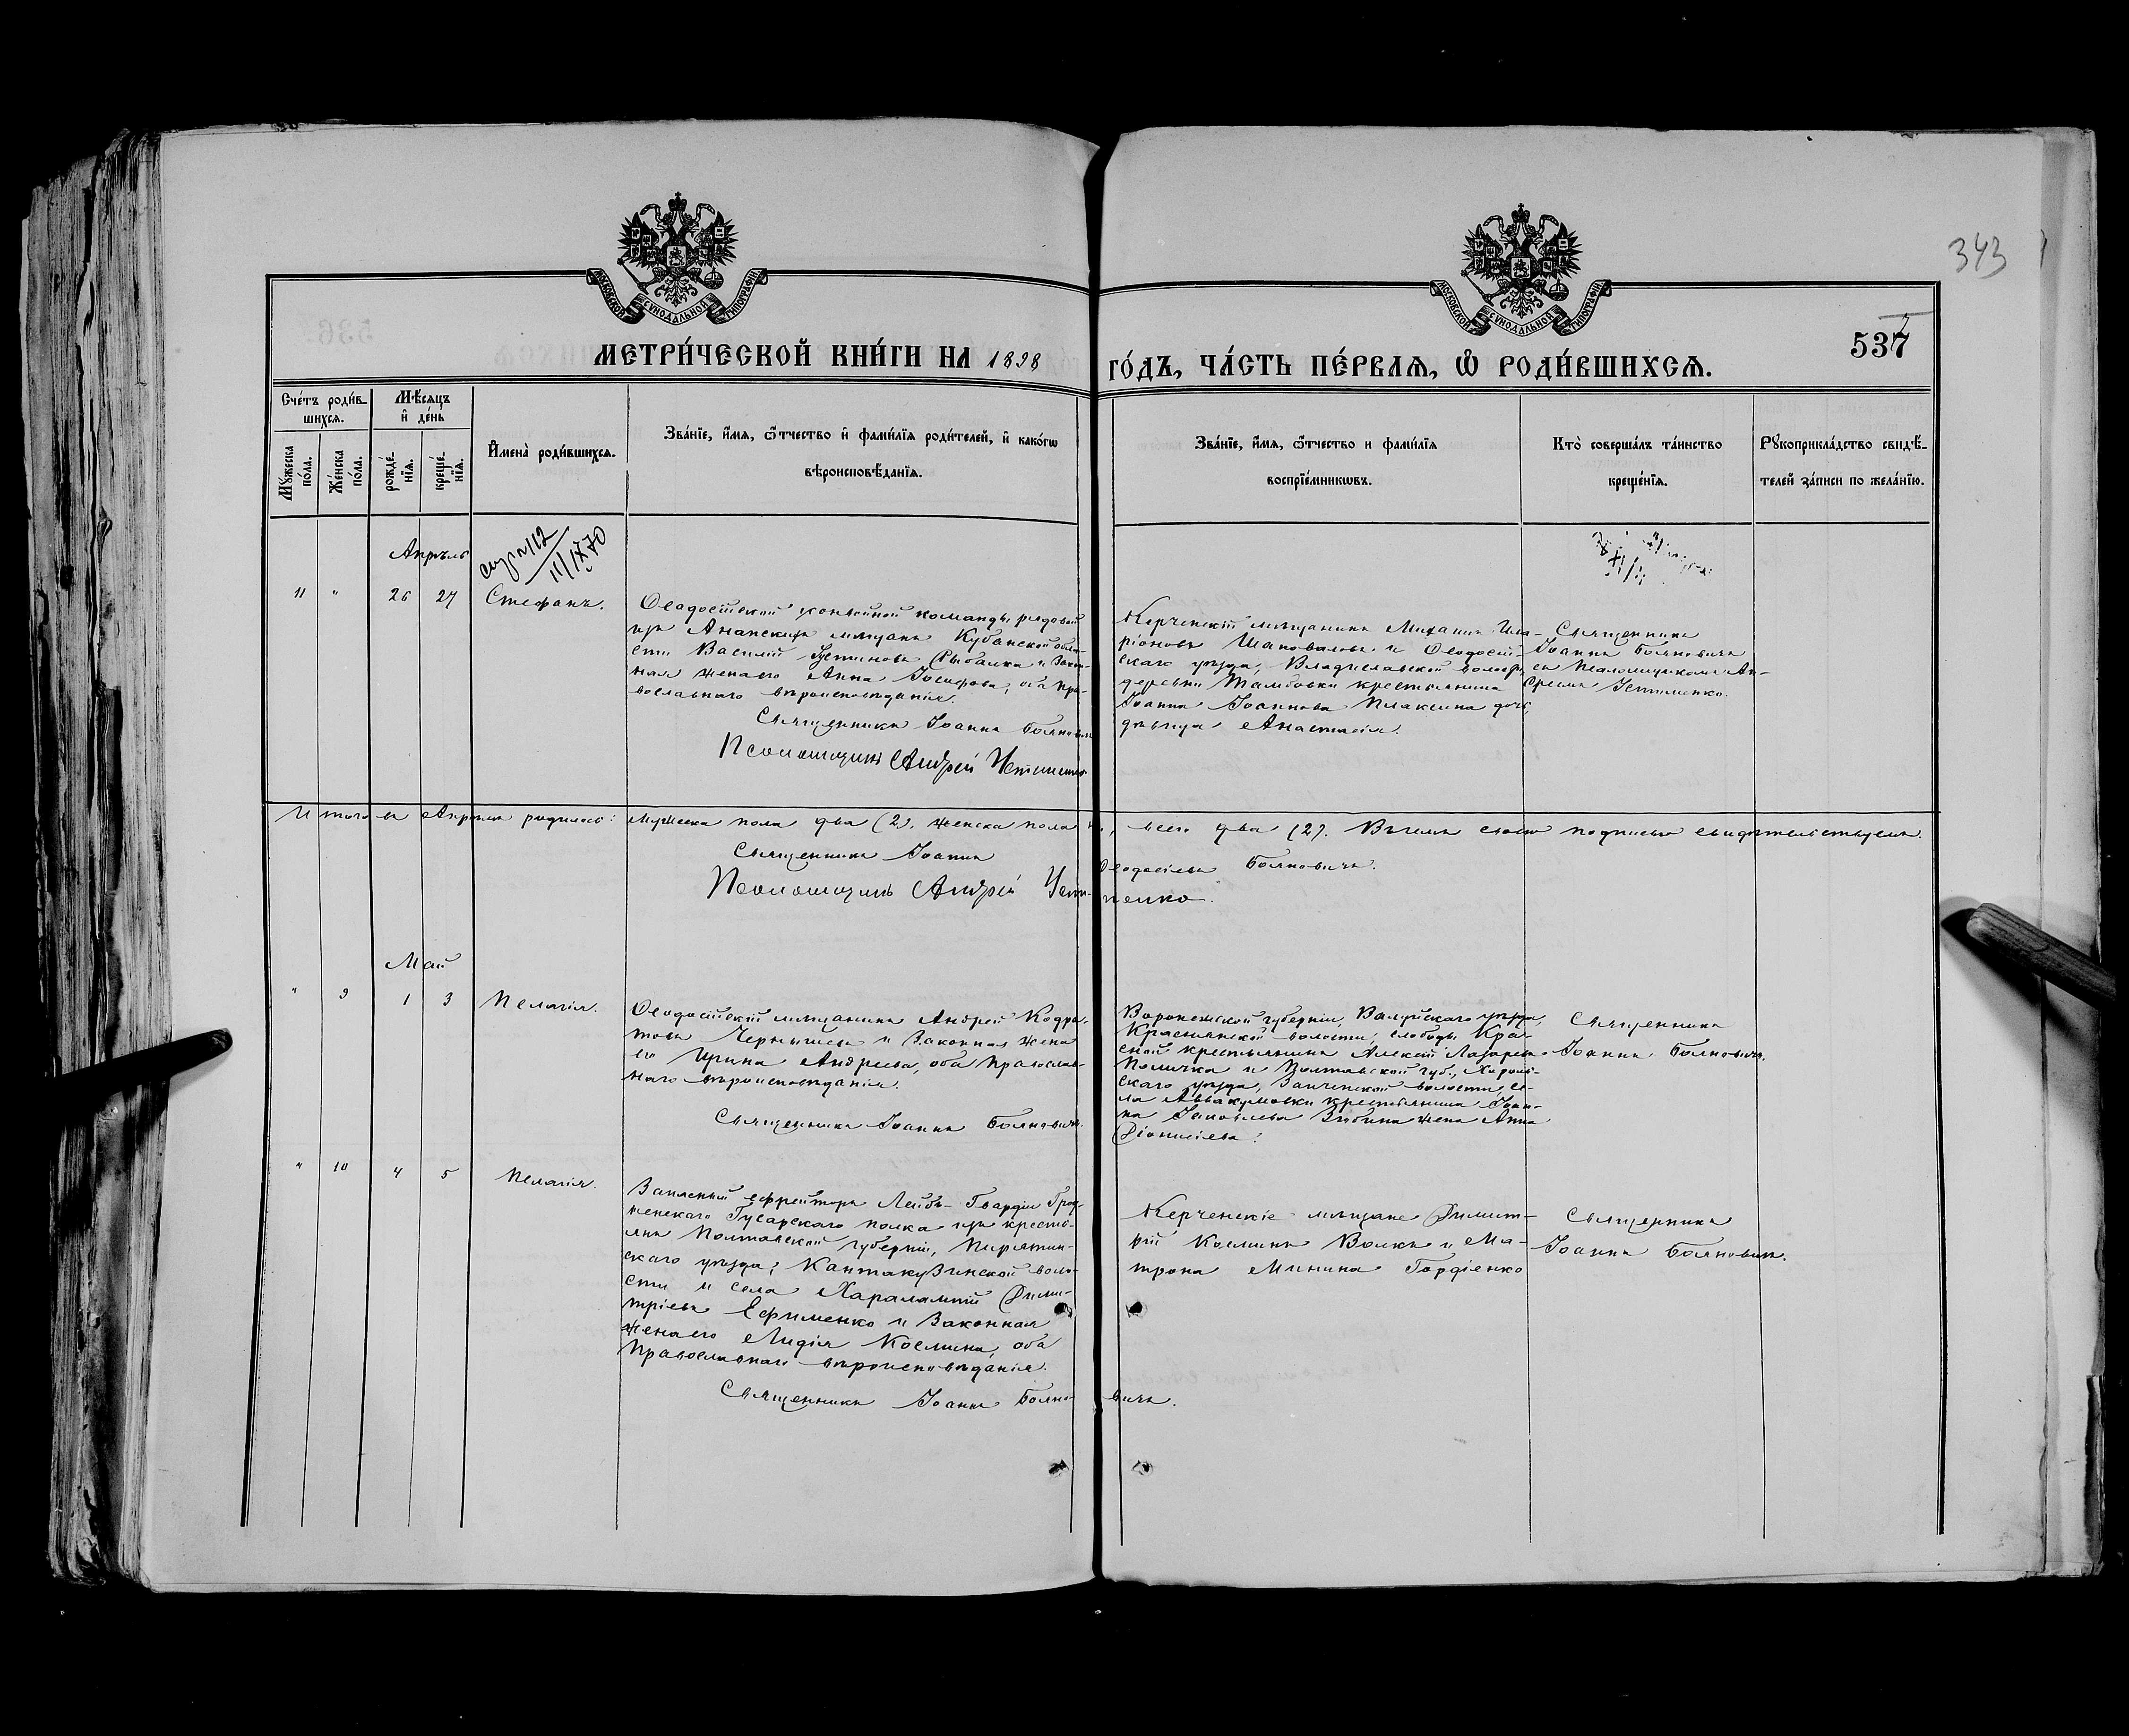 343
МОСКОВСКОЙ СѴНОДАЛЬНОЙ ТИПОГРАФІИ
МОСКОВСКОЙ СѴНОДАЛЬНОЙ ТИПОГРАФІИ
537
МЕТРИ́ЧЕСКОЙ КНИ́ГИ НА 1898 ГО́ДЪ, ЧА́СТЬ ПЕ́РВАѦ, Ѡ҆ РОДИ́ВШИХСѦ.
Сче́тъ роди́в-
шихсѧ.
Мꙋ́жеска по́ла.
Же́нска по́ла.
Мѣ́сѧцъ
и҆ де́нь
рожде́-
нїѧ.
креще́-
нїѧ.
И҆мена̀ роди́вшихсѧ.
Зва́нїе, и҆́мѧ, ѻ҆́тчество и҆ фами́лїѧ роди́телей, и҆ како́гѡ
вѣроисповѣ́данїѧ.
Зва́нїе, и҆́мѧ, ѻ҆́тчество и фами́лїѧ
воспрїе́мникѡвъ.
Кто̀ соверша́лъ та́инство
креще́нїѧ.
Рꙋкоприкла́дство свидѣ́-
телей за́писи по жела́нїю.
Апрѣль
11 " 26 27 Стефанъ.
Ѳеодосійской конвойной команды рядовой
изъ Анапскихъ мѣщанъ Кубанской обла-
сти Василій Устиновъ Рыбалка и Закон-
ная жена его Анна Іосифова, оба Пра-
вославнаго вѣроисповѣданія.
Священникъ Іоаннъ Бояновичъ
Псаломщикъ Андрей Устименко
Керченскій мѣщанинъ Михаилъ Ила-
ріоновъ Шаповаловъ и Ѳеодосій-
скаго уѣзда, Владиславской волости,
деревни Тамбовки крестьянина
Іоанна Іоаннова Плаксина дочь,
дѣвица Анастасія.
Священникъ
Іоаннъ Бояновичъ
съ Псаломщикомъ Ан-
дреемъ Устименко.
Итого въ Апрѣлѣ родилось: Мужеска пола два (2), женска пола всего два (2). Въ чемъ своею подписью свидѣтельствуемъ.
Священникъ Іоаннъ Ѳеодосіевъ Бояновичъ.
Псаломщикъ Андрей Устименко.
Май
" 9 1 3 Пелагія.
Ѳеодосійскій мѣщанинъ Андрей Кодра-
товъ Чернышевъ и Законная жена
его Ирина Андреева, оба Православ-
наго вѣроисповѣданія.
Священникъ Іоаннъ Бояновичъ.
Воронежской губерніи, Валуйскаго уѣзда,
Краснянской волости, слободы Кра-
сной крестьянинъ Алексій Лазаревъ
Поличка и Полтавской губ., Хороль-
скаго уѣзда, волости, се-
ла Аввакумовки крестьянина Іоан-
на Іаковлева Зябина жена Анна
Діонисіева.
Священникъ
Іоаннъ Бояновичъ.
" 10 4 5 Пелагія.
Запасный ефрейторъ Лейбъ-Гвардіи Грод-
ненскаго Гусарскаго полка изъ кресть-
янъ Полтавской губерніи, Пирятин-
скаго уѣзда, Кантакузинской воло-
сти и села Харалампій Дими-
тріевъ Ефименко и Законная
жена его Лидія Космина, оба
Православнаго вѣроисповѣданія.
Священникъ Іоаннъ Бояновичъ.
Керченскіе мѣщане Димит-
рій Косминъ Волкъ и Ма-
трона Минина Гордіенко
Священникъ
Іоаннъ Бояновичъ.